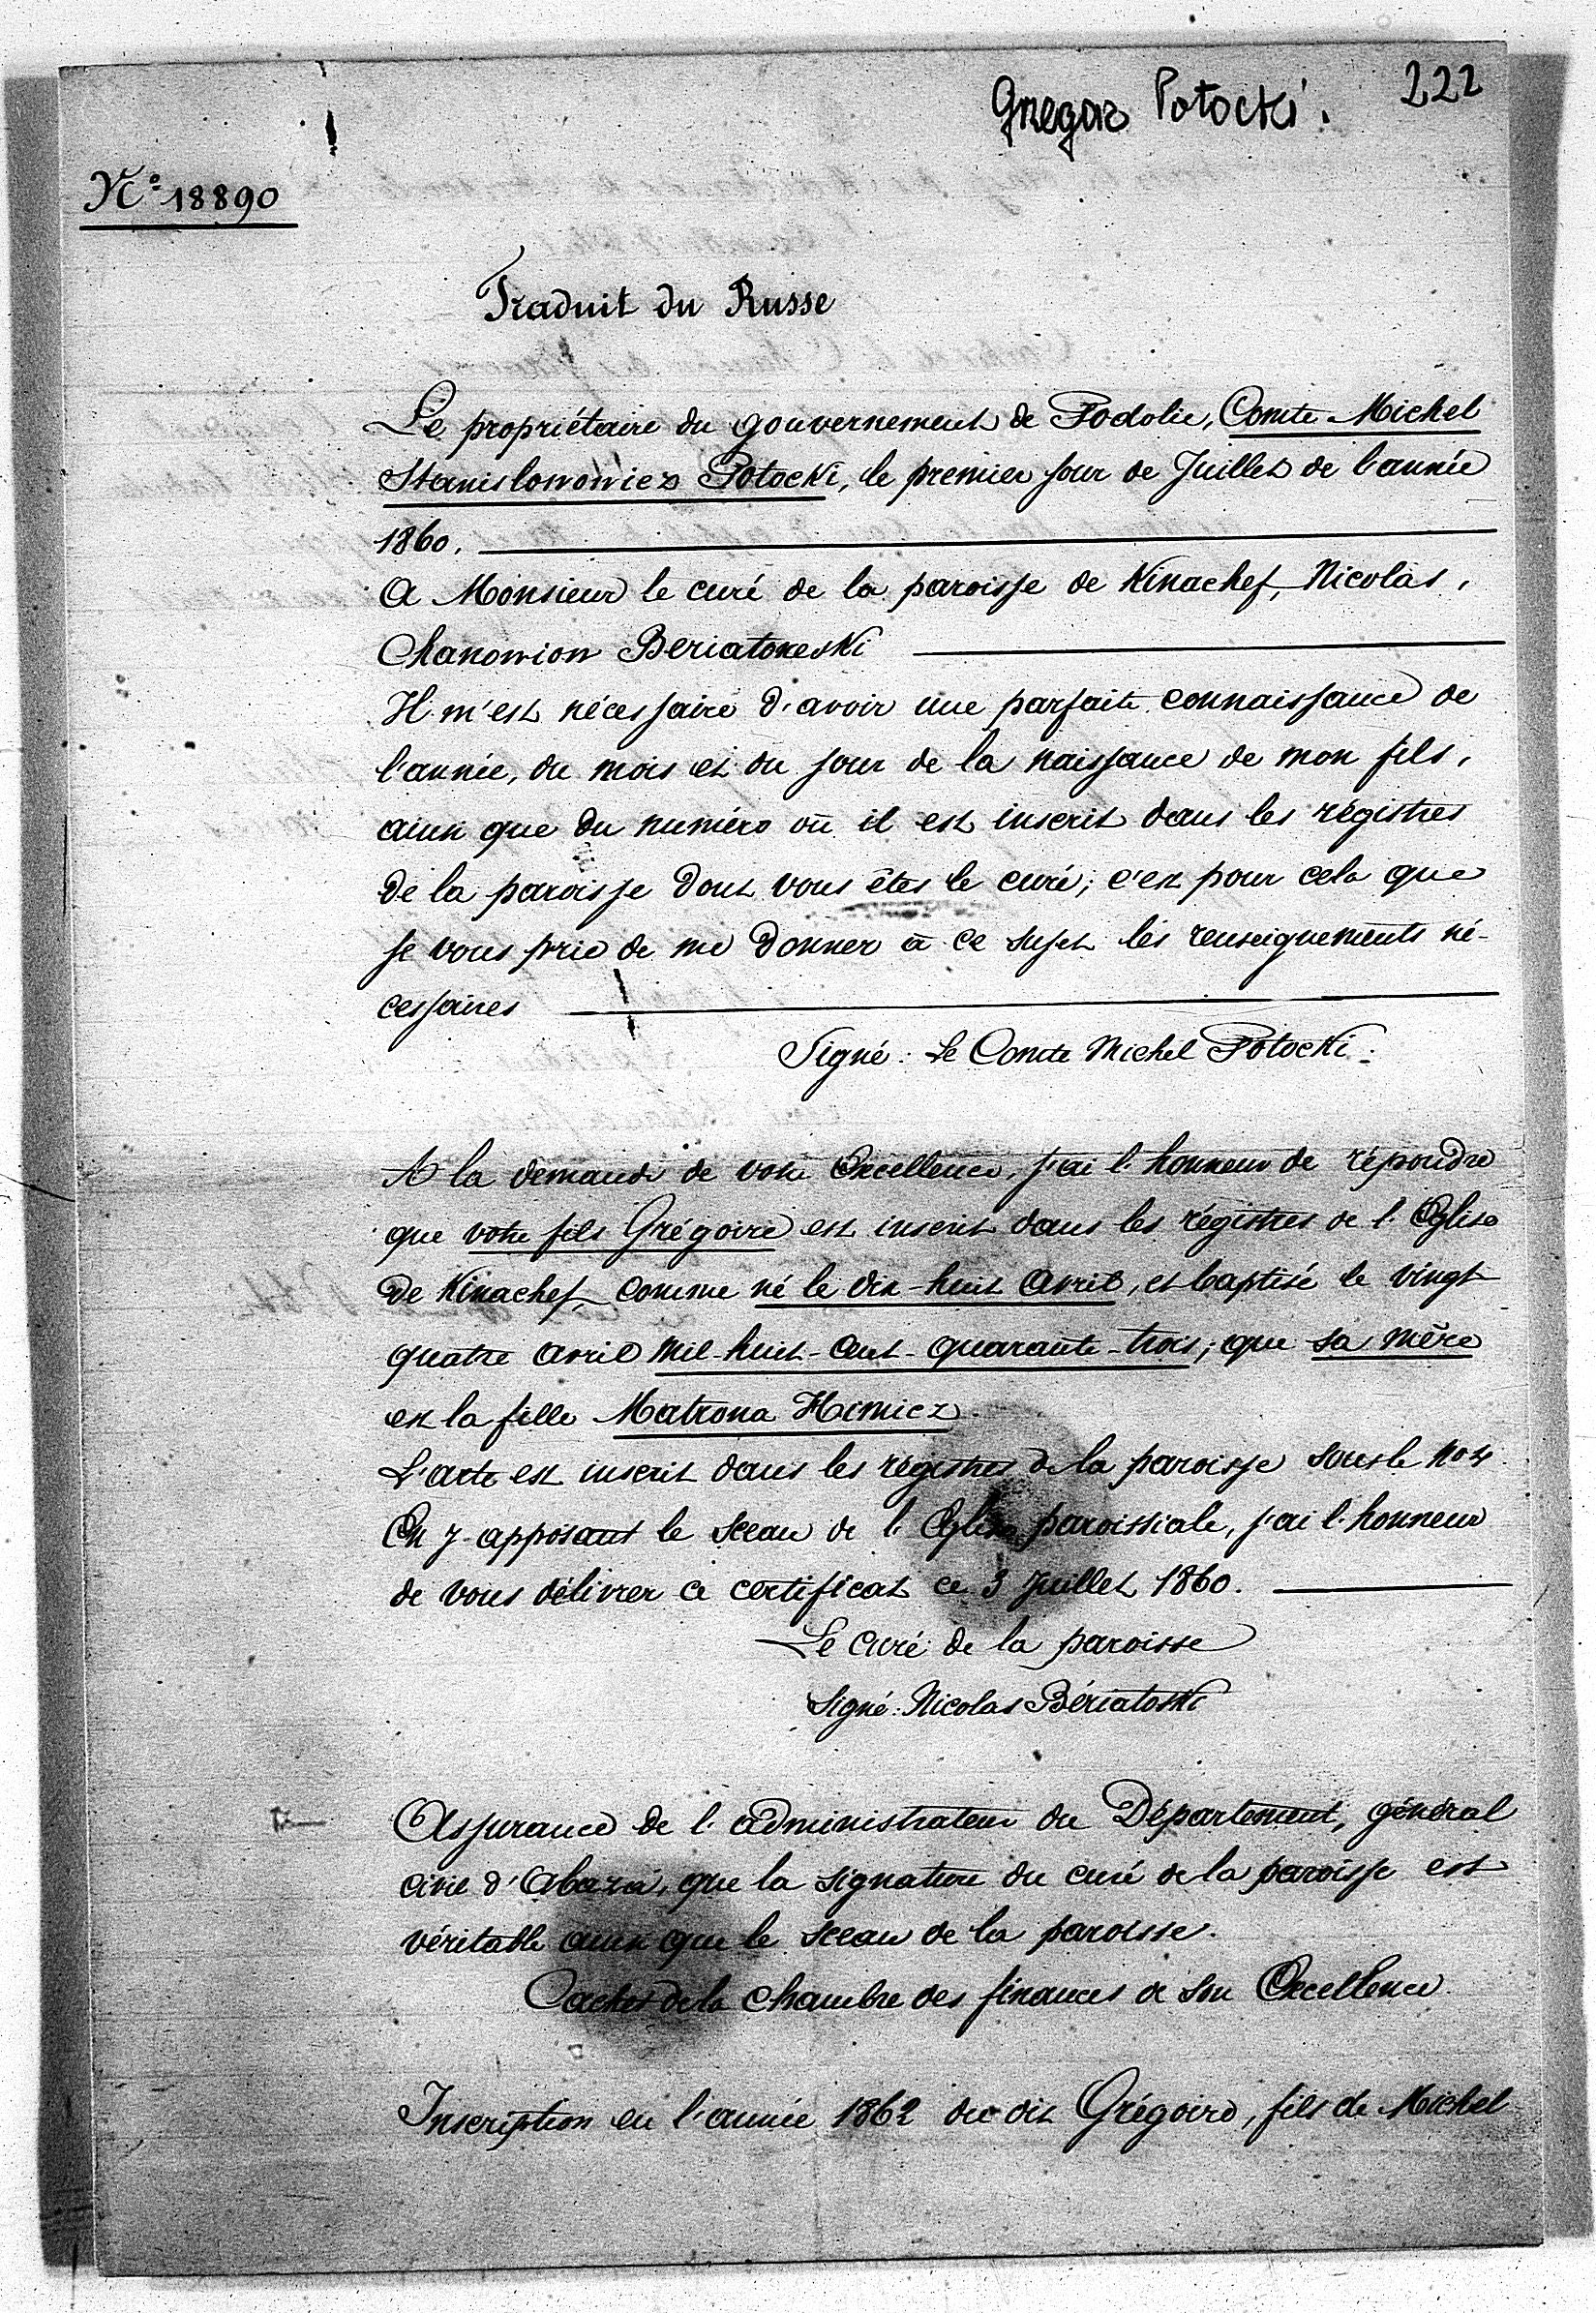 Gregor Potocki.
222
N° 18890
Traduit du Russe
Le propriétaire du gouvernement de Podolie, Comte Michel
Stanislowowiez Potocki, le premier jour de Juillet de l'année
1860.
A Monsieur le curé de la paroisse de Kinachef, Nicolas,
Chanowion Beriatoneski
Il m'est nécessaire d'avoir une parfaite connaissance de
l'année, du mois et du jour de la naissance de mon fils,
ainsi que du numéro où il est inscrit dans les régistres
de la paroisse dont vous êtes le curé; c'est pour cela que
je vous prie de me donner à ce sujet les renseignements né-
cessaires
Signé: Le Comte Michel Potocki.
A la demande de votre Excellence, j'ai l'honneur de répondre
que votre fils Grégoire est inscrit dans les régistres de l'Eglise
de Kinachef, comme né le dix-huit avril, et baptisé le vingt
quatre avril mil-huit-cent-quarante-trois; que sa mère
est la fille Matrona Himicz.
L'acte est inscrit dans les régistres de la paroisse sous le No 4.
En y apposant le sceau de l'Eglise paroissiale, j'ai l'honneur
de vous délivrer ce certificat ce 3 Juillet 1860.
Le curé de la paroisse
Signé: Nicolas Bériatoski
Assurance de l'administrateur du Département, général
civil d'Abaza, que la signature du curé de la paroisse est
véritable ainsi que le sceau de la paroisse.
Cachet de la chambre des finances de son Excellence.
Inscription en l'année 1862 du dit Grégoire, fils de Michel